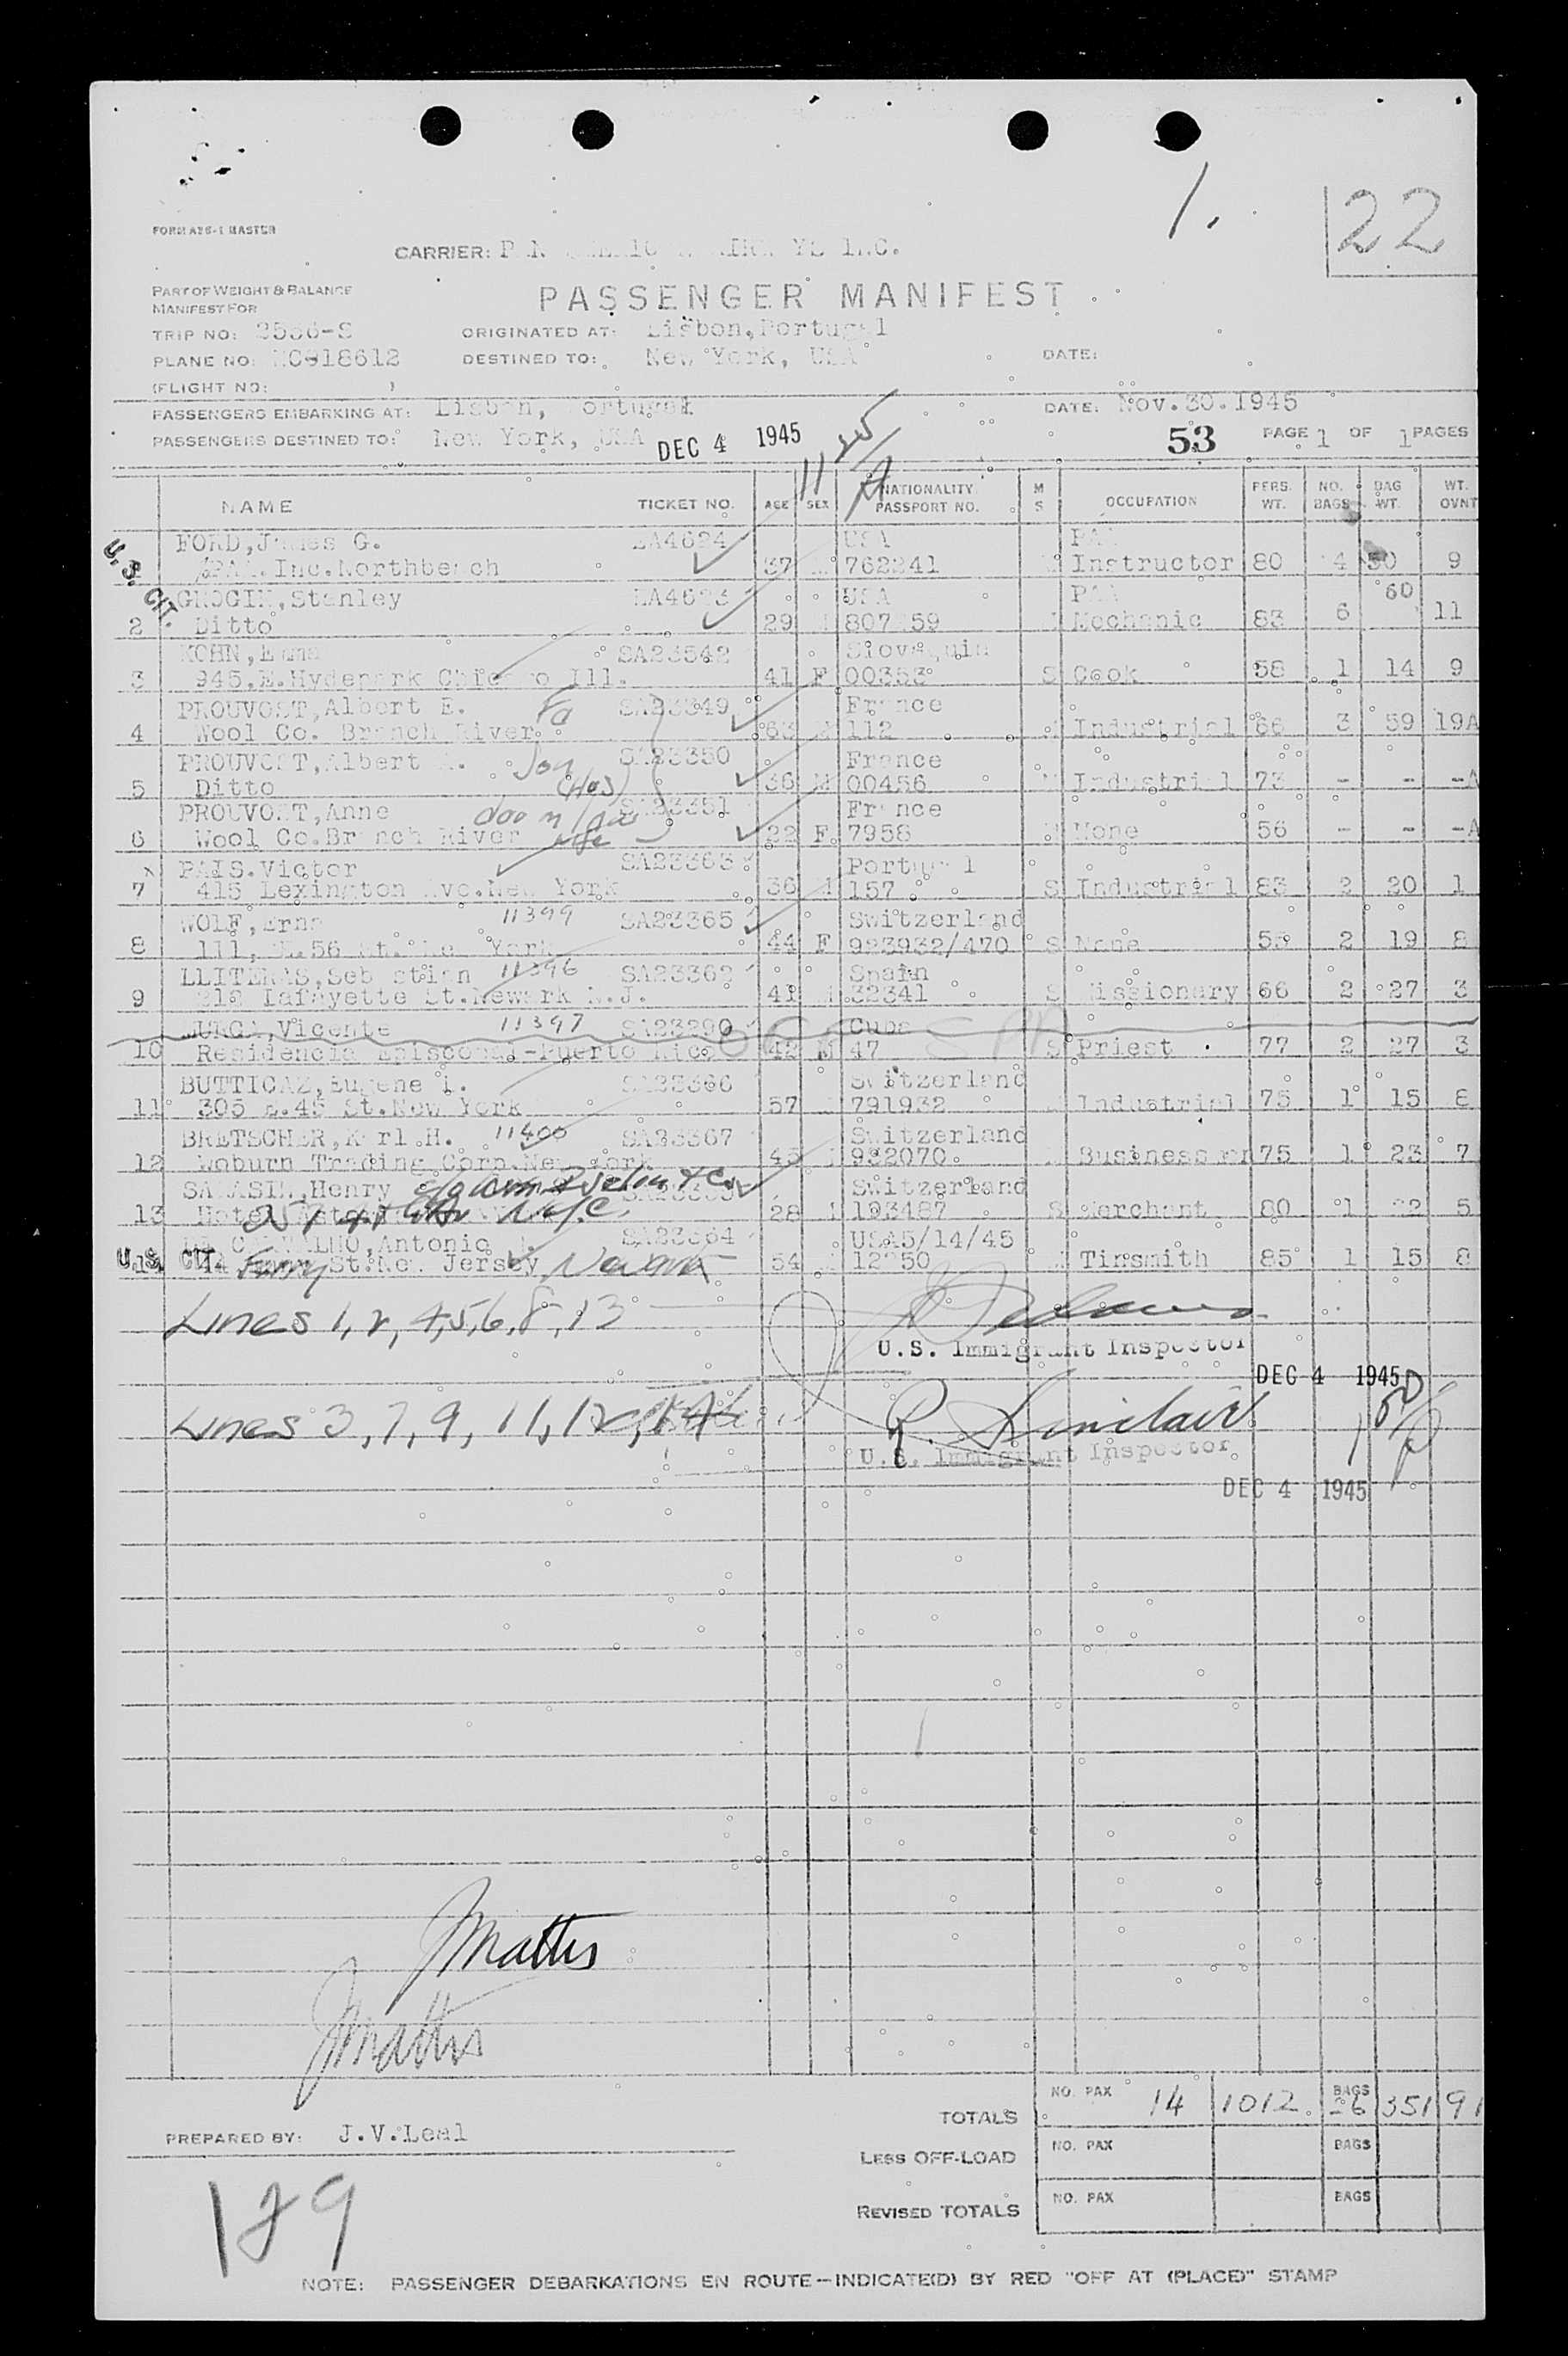 1.
22
FORM A26-1 MASTER
CARRIER: INC.
PART OF WEIGHT & BALANCE
MANIFEST FOR
PASSENGER MANIFEST
TRIP NO: ORIGINATED AT: Lisbon, Portugal
PLANE NO: NC918612 DESTINED TO: New York, USA DATE:
(FLIGHT NO: )
PASSENGERS EMBARKING AT: Lisbon, Portugal DATE: Nov.30.1945
PASSENGERS DESTINED TO: New York, USA DEC 4 1945 53 PAGE 1 OF 1 PAGES
NAME TICKET NO. AGE SEX NATIONALITY PASSPORT NO. M S OCCUPATION PERS. WT. NO. BAGS BAG WT. WT. OVNT
U.S. CIT.
FORD,James G. LA4624 USA PAA
PAA.Inc.Northbeach 37 762241 Instructor 80 4 50 9
GROGIN,Stanley USA PAA 60
2 Ditto 29 Mechanic 83 6 11
KOHN, SA23542
3 945,E.Hydepark Chicago Ill. 41 F 00353 S Cook 58 1 14 9
PROUVOST,Albert E. Fa SA23349 France
4 Wool Co. Branch River 63 112 Industrial 66 3 59 19A
PROUVOST,Albert Son SA23350 France
5 Ditto (Hus) 36 M 00456 Industrial 73 - - -A
PROUVOST,Anne SA23351 France
6 Wool Co.Branch River wife 22 F 7958 None 56 - - -A
PAIS.Victor SA23363 Portugal
7 415 Lexington Ave.New York 36 157 S Industrial 83 2 20 1
WOLF,Erna 11399 SA23365 Switzerland
8 111, E.56 St. New York 44 F 923932/470 S None 2 19 8
LLITERAS,Sebastian 11396 SA23362 Spain
9 Lafayette St.Newark N.J. 41 32341 S Missionary 66 2 27 3
MURGA,Vicente 11397 SA23290 Cuba
10 Residencia Episcopal-Puerto Rico 42 M 47 S Priest 77 2 27 3
BUTTICAZ,Eugene SA23366 Switzerland
11 305 E.45 St.New York 57 791932 Industrial 75 1 15 8
BRETSCHER,Karl.H. 11400 SA23367 Switzerland
12 Woburn Trading Corp.New York 45 932070 Business 75 1 23 7
Henry Switzerland
13 Hotel N.Y.C. 28 193487 S Merchant 80 1 22 5
Antonio SA23364 USA5/14/45
U.S. CIT. Ferry St.New Jersey Newark 54 Tinsmith 85 1 15 8
Lines 1, 2, 4, 5, 6, 8, 13
U.S. Immigrant Inspector
DEC 4 1945
Lines 3, 7, 9, 11, 12, R. Sinclair
U.S. Immigrant Inspector
DEC 4 1945
JMattis
JMattis
TOTALS NO. PAX 14 1012 BAGS 26 351 91
PREPARED BY: J.V.Leal
LESS OFF-LOAD NO. PAX BAGS
REVISED TOTALS NO. PAX BAGS
NOTE: PASSENGER DEBARKATIONS EN ROUTE—INDICATE(D) BY RED "OFF AT (PLACE)" STAMP